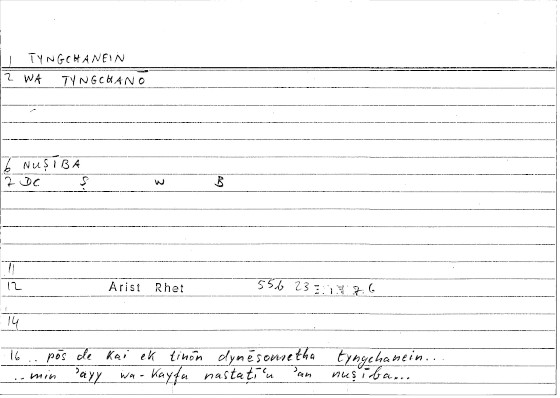 1 TYNGCHANEIN
2 WA TYNGCHANŌ
6 NUṢĪBA
7 DC Ṣ W B
11
12 Arist Rhet 55b 23 76
14
16 .. pōs de kai ek tinōn dynēsometha tyngchanein...
..min ʾayy wa-kayfa nastaṭīʿu ʾan nuṣība...